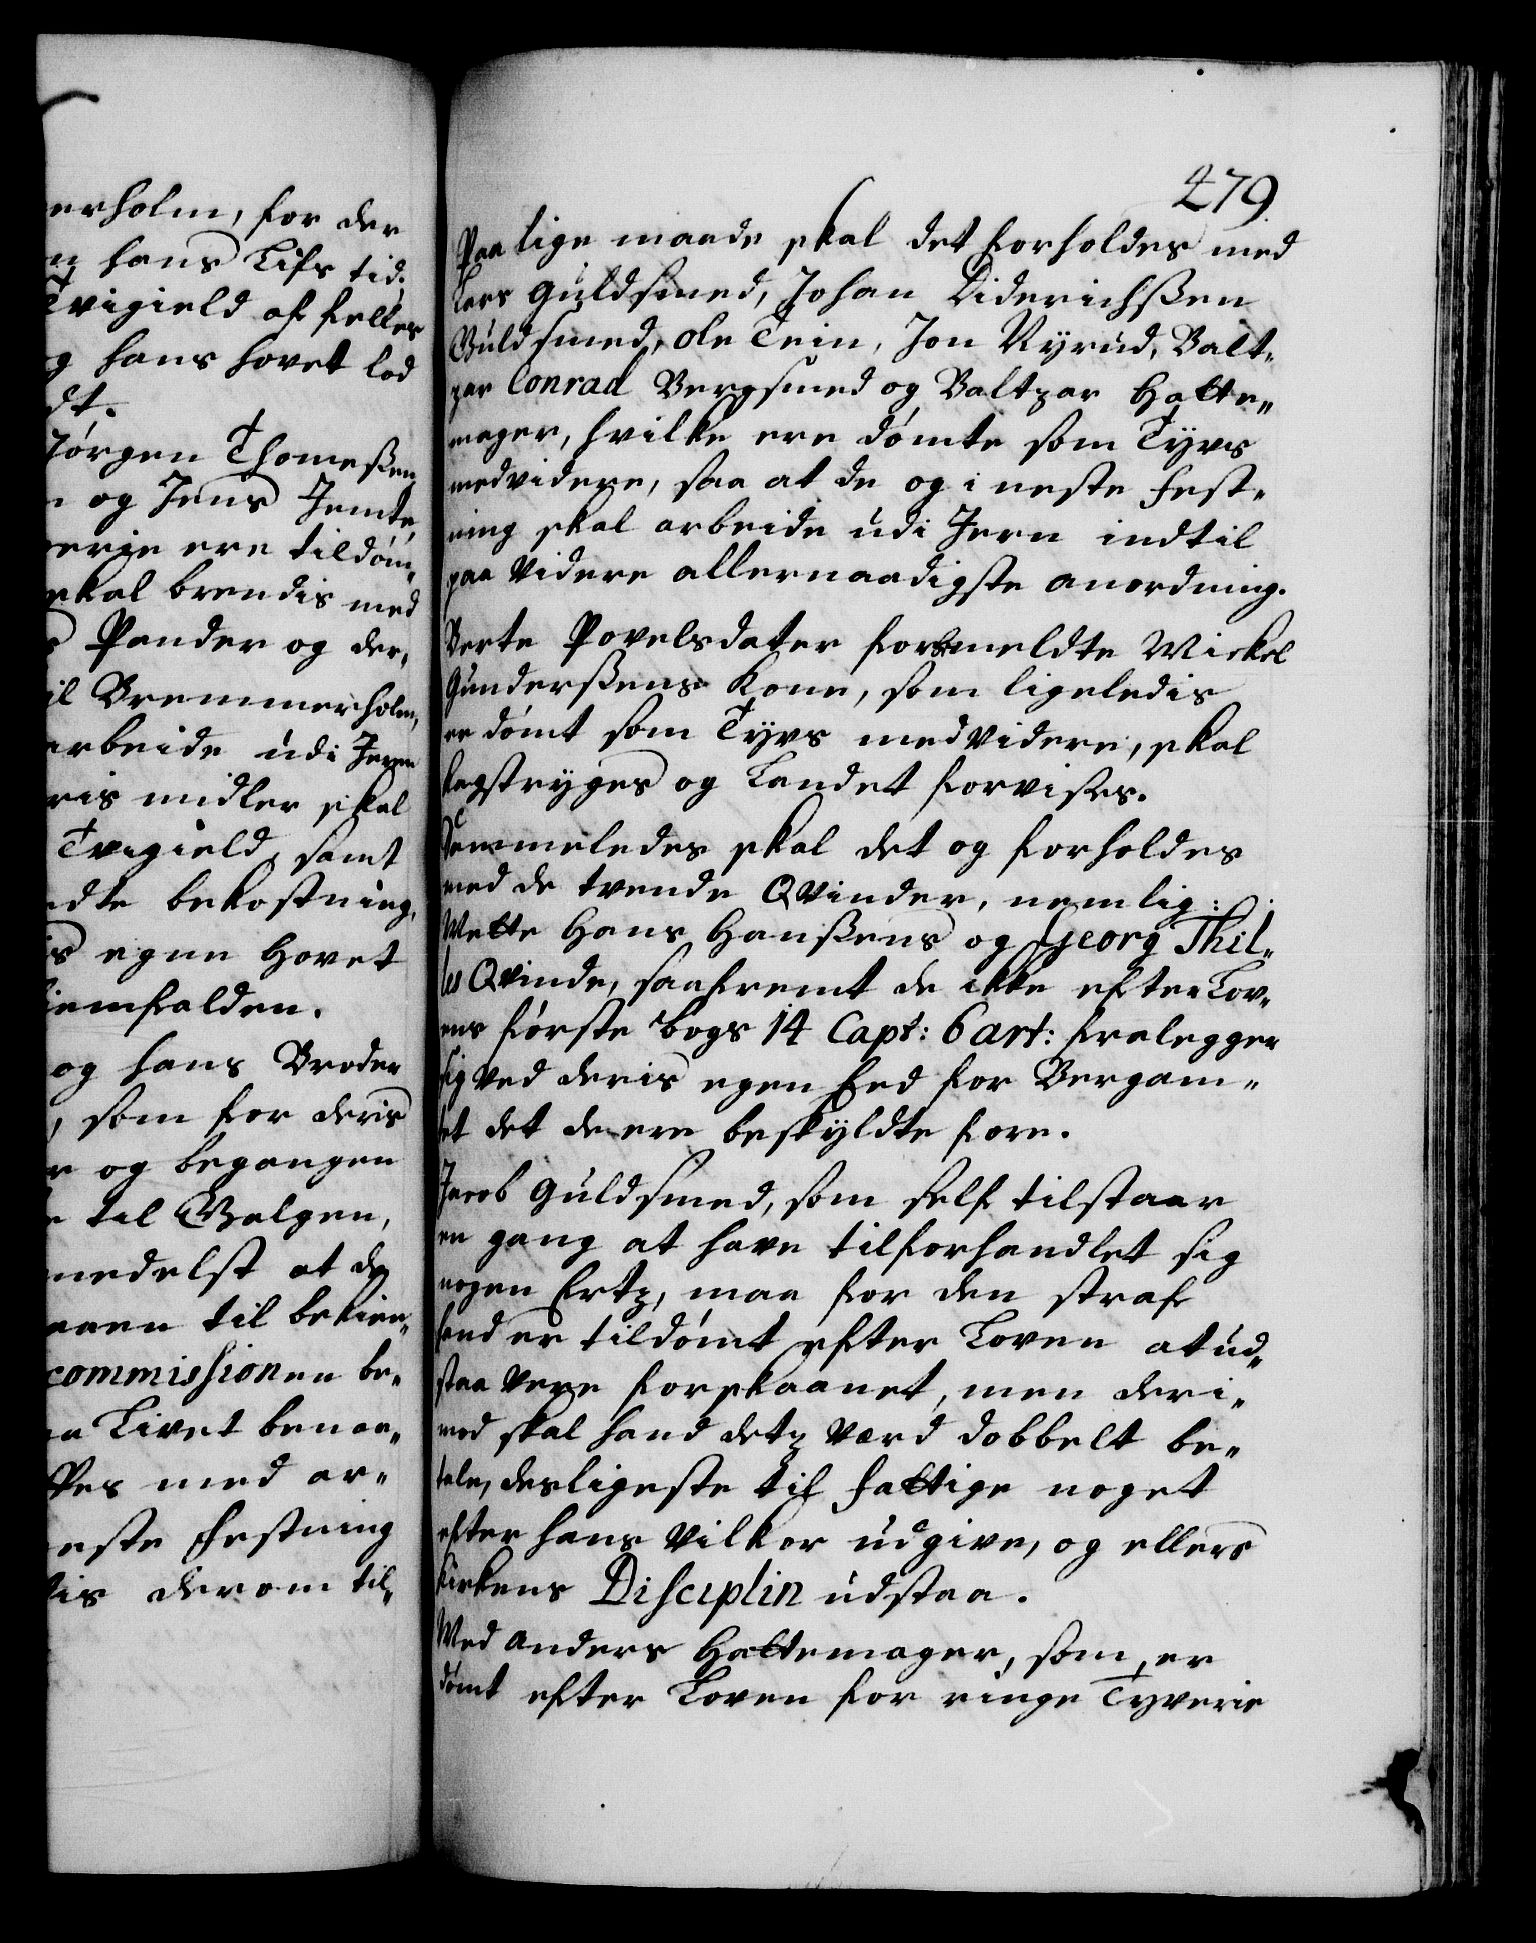 erholm, for der
n hans Lifs tid.
Tvigield af felles
g hans hovet lod
dt.
Jørgen Thomeßen
og Jens Jemte,
verie ere tildøm„
skal brendis med
s Pander og der„
il Bremmerholm,
arbeide udi Jern
ris midler skal
Tvigield, samt
dte bekostning,
is egne hovet
iemfalden.
og hans Broder
, som for deris
r og begangen
e til Galgen,
medelst at de
aaen til bekien„
commissionen be„
a Livet benaa„
Pes med ar„
este Festning
is derom til„
479.
Paa lige maade skal det forholdes med
Lars Guldsmed, Johan Diderichßen
Guldsmed, Ole Tein, Jon Ryrud, Balt„
zar Conrad Bergsmed og Baltzar Hatte„
mager, hvilke ere dømte som Tyvs
medvidere, saa at de og i neste Fest„
ning skal arbeide udi Jern indtil
paa Videre allernaadigste anordning.
Berte Povelsdater formeldte Mickel
Gunderßens Kone, som ligeledis
er dømt som Tyvs medvidere, skal
kagstryges og Landet forvises.
Sammeledes skal det og forholdes
med de tvende Qvinder, nemlig:
Mette Hans Hanßens og Georg Thil„
les Qvinde, saafremt de ikke efter Lov„
ens første bogs 14 Capt: 6 art: fralegger
sig ved deris egen Eed for Bergam„
tet det de ere beskyldte fore.
Jacob Guldsmed, som self tilstaar
en gang at have tilforhandlet sig
nogen Ertz, maa for den straf
hand er tildømt efter Loven at ud„
staa være forskaanet, men deri„
mod skal hand detz værd dobbelt be„
tale, desligeste til fattige noget
efter hans Vilkor udgive, og ellers
Kirkens Disciplin udstaa.
Med Anders Hattemager, som er
dømt efter Loven for ringe Tyverie